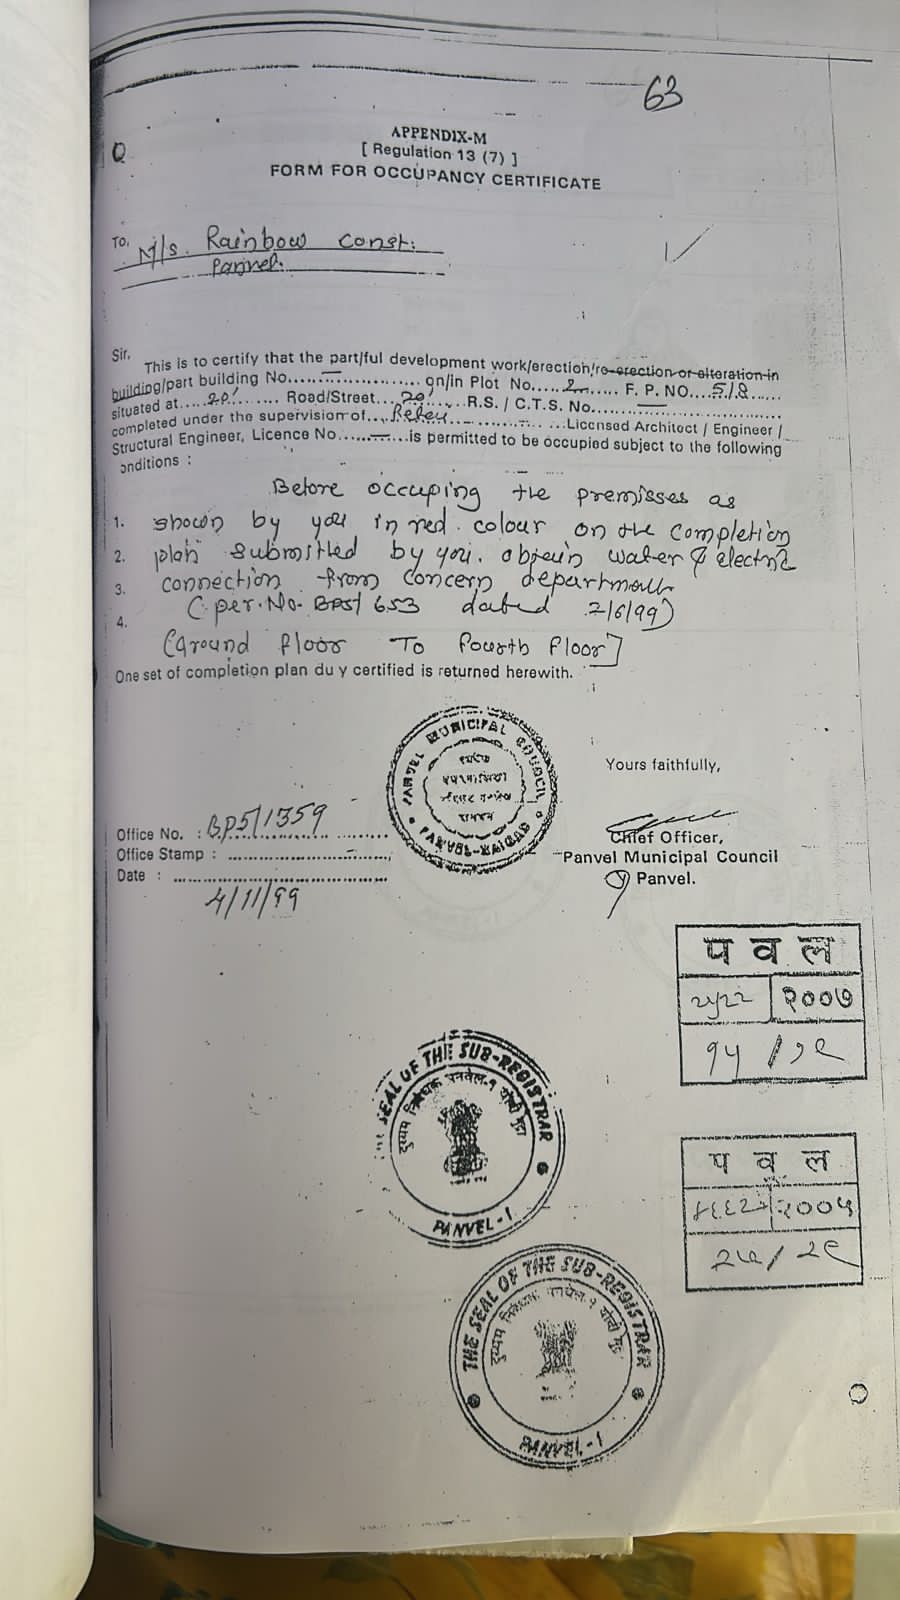 63
APPENDIX-M
[ Regulation 13 (7) ]
FORM FOR OCCUPANCY CERTIFICATE
To, M/s. Rainbow Const.
Panvel.
Sir,
This is to certify that the part/ful development work/erection/re-erection or alteration in
building/part building No....—.... on/in Plot No....2.... F. P. NO....5/8....
situated at.... Road/Street.... R.S. / C.T.S. No....—....
completed under the supervision of.... Licensed Architect / Engineer /
Structural Engineer, Licence No....—....is permitted to be occupied subject to the following
onditions :
Before occuping the premisses as
1. shown by you in red colour on the completion
2. plan submitted by you. obtain water & electric
3. connection from concern department
4. (per. No. BPS/653 dated 2/6/99)
(Ground floor To fourth floor]
One set of completion plan du y certified is returned herewith.
PANVEL MUNICIPAL COUNCIL
PANVEL-RAIGAD
Yours faithfully,
Office No. : BPS/1359
Office Stamp :
Date :
4/11/99
Chief Officer,
Panvel Municipal Council
Panvel.
प व ल
२००७
१५ /
THE SEAL OF THE SUB-REGISTRAR
दुय्यम निबंधक पनवेल-१ यांची मुद्रा
PANVEL-1
प व ल
२००५
THE SEAL OF THE SUB-REGISTRAR
दुय्यम निबंधक पनवेल-१ यांची मुद्रा
PANVEL-1